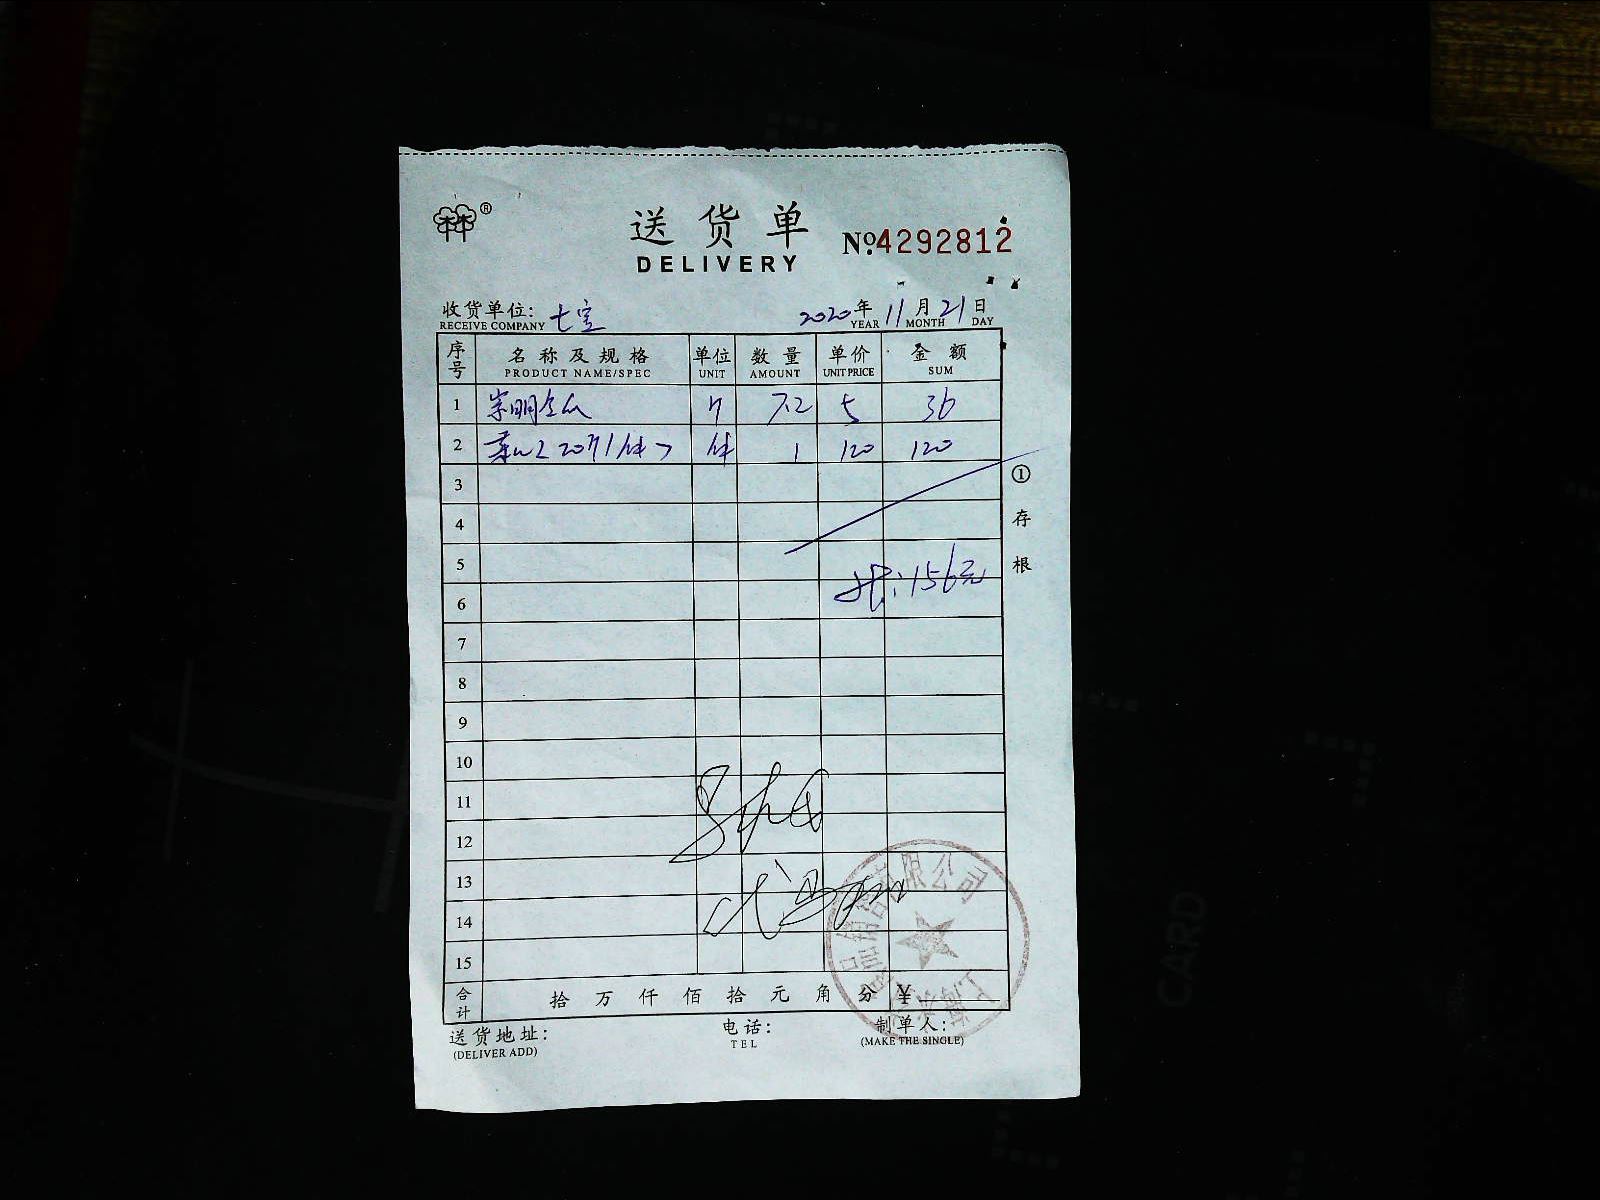 送货单
DELIVERY
№ 4292812
收货单位: 七宝 2020年 11月 21日
RECEIVE COMPANY YEAR MONTH DAY
序号 名称及规格 单位 数量 单价 金额
PRODUCT NAME/SPEC UNIT AMOUNT UNIT PRICE SUM
1 崇明 斤 7.2 5 36
2 20斤/件 件 1 120 120
3
4
5
156元
6
7
8
9
10
11
12
13
14
15
合计 拾 万 仟 佰 拾 元 角 分 ¥
送货地址: 电话: 制单人:
(DELIVER ADD) TEL (MAKE THE SINGLE)
① 存根
有限公司
上海
CARD